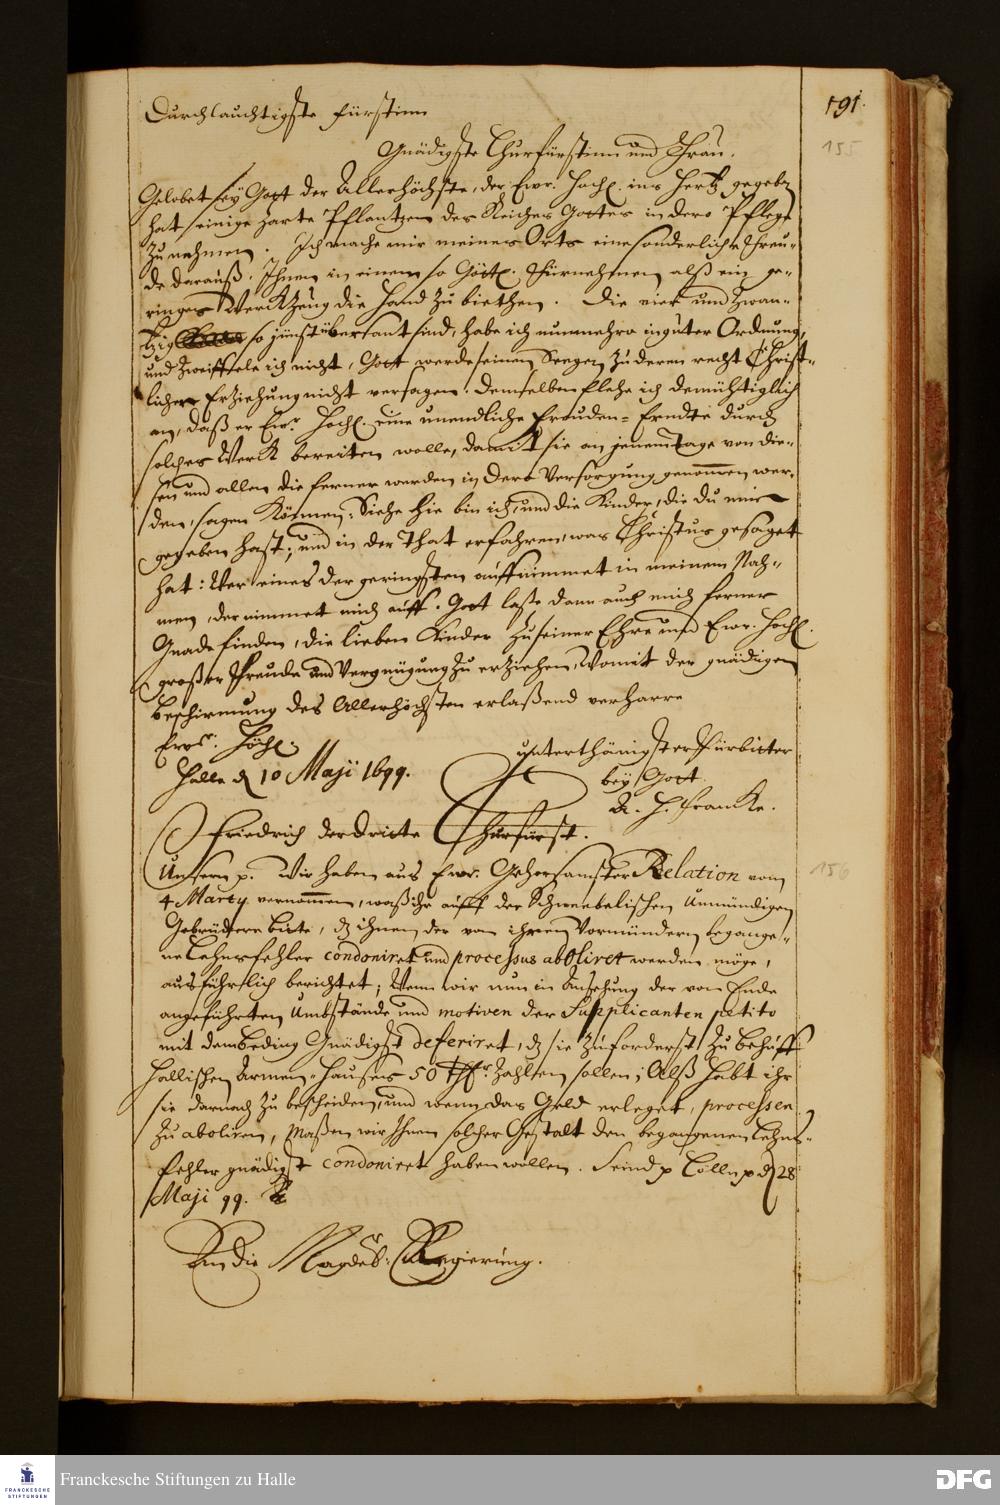 191.
155
Durchlauchtigste Fürstinn
Gnädigste Churfürstinn und Frau.
Gelobet sey Gott der Allerhöchste, der Ewr. Hochl. ins Hertz gegeben
hat, einige zarte Pflantzen des Reiches Gottes in dero Pflege
zu nehmen. Ich mache mir meines Orts eine sonderliche Freu-
de darauß, Ihnen in einem so Göttl. Fürnehmen alß ein ge-
ringes Werckzeug die Hand zu biethen. Die vier und zwan-
tzig so jüngst übersant sind, habe ich nunmehro in guter Ordnung,
und zweiffele ich nicht, Gott werde seinen Seegen zu deren recht Christ-
licher Erziehung nicht versagen. Demselben flehe ich demühtiglich
an, daß er Ewr. Hochl. eine unendliche Freuden-Erndte durch
solches Werck bereiten wolle, damit sie an jenem Tage von die-
sen und allen die ferner werden in dero Versorgung genommen wer-
den, sagen können: Siehe hie bin ich, und die Kinder, die du mir
gegeben hast; und in der That erfahren, was Christus gesaget
hat: Wer eines der geringsten auffnimmet in meinem Nah-
men, der nimmet mich auff. Gott laße dann auch mich ferner
Gnade finden, die lieben Kinder zu seiner Ehre und Ewr. Hochl.
großer Freude und Vergnügung zu erziehen, Womit der gnädigen
Beschirmung des Allerhöchsten erlaßend verharre
Ewr. Hochl.
Halle d 10 Maji 1699.
unterthänigster Fürbitter
bey Gott
A. H. Francke.
Friedrich der Dritte Churfürst.
156
Unsern p. Wir haben aus Ewr. Gehorsamster Relation vom
4 Marty vernommen, waß ihr auff der Schneebelischen Unmündigen
Gebrüdere bitte, dz ihnen der von ihren Vormündern begange-
ne Lehnsfehler condoniret und processus aboliret werden möge,
ausführlich berichtet; Wenn wir nun in Ansehung der von Ende
angeführten Umbstände und motiven der Supplicanten petito
mit dem Beding Gnädigst deferiret, dz sie zuforderst zu behuff
Hallischen Armen-Hauses 50 Thlr. zahlen sollen; Alß habt ihr
sie darnach zu bescheiden, und wenn das Geld erleget, processen
zu aboliren, Maßen wir Ihnen solcher Gestalt den begangenen Lehns-
fehler gnädigst condoniret haben wollen. Seind p Cölln p d 28
Maji 99.
An die Magdeb: Regierung.
FRANCKESCHE
STIFTUNGEN
Franckesche Stiftungen zu Halle
DFG